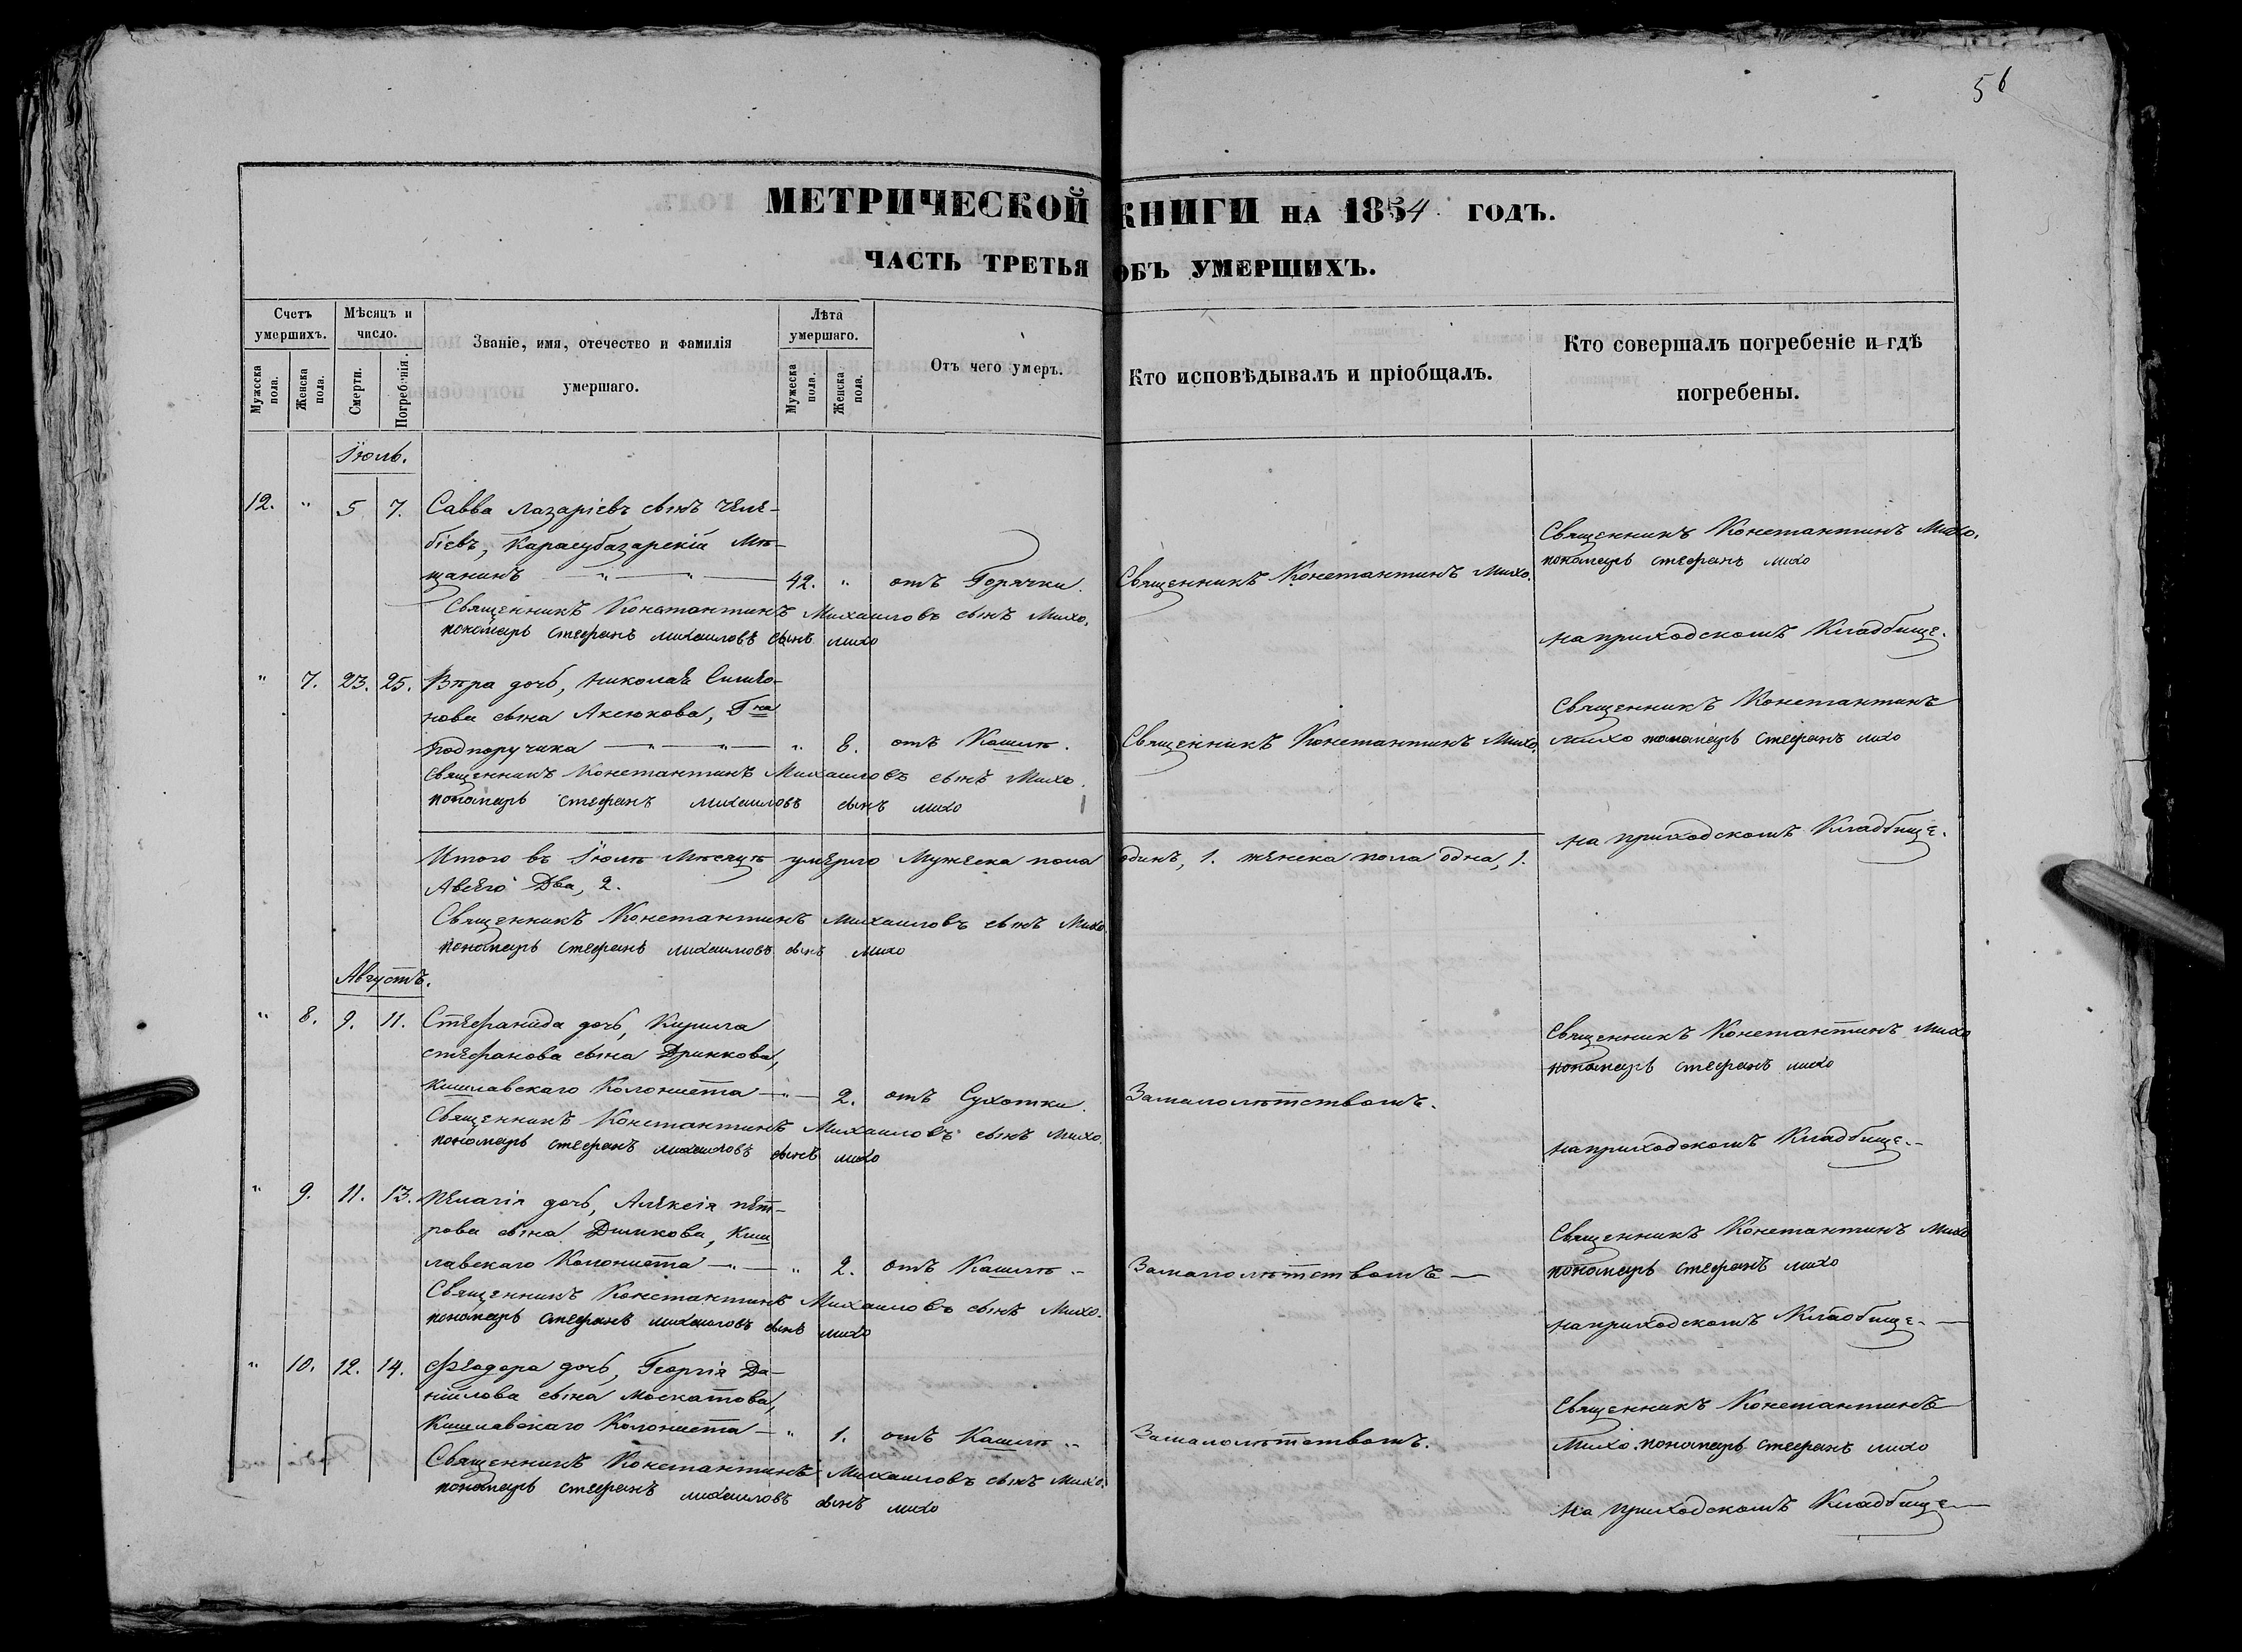 56
МЕТРИЧЕСКОЙ КНИГИ НА 1854 ГОДЪ.
ЧАСТЬ ТРЕТЬЯ ОБЪ УМЕРШИХЪ.
Счетъ умершихъ.
Мужеска пола.
Женска пола.
Мѣсяцъ и число.
Смерти.
Погребенія.
Званіе, имя, отечество и фамилія умершаго.
Лѣта умершаго.
Мужеска пола.
Женска пола.
Отъ чего умеръ.
Кто исповѣдывалъ и пріобщалъ.
Кто совершалъ погребеніе и гдѣ погребены.
Іюль.
12. " 5 7. Савва Лазаріевъ сынъ Челе-
біевъ, Карасубазарскій Мѣ-
щанинъ 42. " отъ Горячки. Священникъ Константинъ Михо.
Священникъ Константинъ Михо.
пономарь стефанъ михо
на приходскомъ Кладбище.
Священникъ Константинъ Михаиловъ сынъ Михо.
пономарь стефанъ михаиловъ сынъ михо
" 7. 23. 25. Вѣра дочь, Николая Симео-
нова сына Аксюкова, Гна
Подпоручика " 8. отъ Кашлѣ. Священникъ Константинъ Михо.
Священникъ Константинъ
Михо пономарь стефанъ михо
на приходскомъ Кладбище.
Священникъ Константинъ Михаиловъ сынъ Михо.
пономарь стефанъ михаиловъ сынъ михо
Итого въ Іюлѣ Мѣсяцѣ умерло Мужеска пола одинъ, 1. женска пола одна, 1.
Авсего Два, 2.
Священникъ Константинъ Михаиловъ сынъ Михо.
пономарь стефанъ михаиловъ сынъ михо
Августъ.
" 8. 9. 11. Стефанида дочь, Кирила
стефанова сына Дринкова,
Кишлавскаго Колониста 2. отъ Сухотки. Замалолѣтствомъ.
Священникъ Константинъ Михо
пономарь стефанъ михо
на приходскомъ Кладбище.
Священникъ Константинъ Михаиловъ сынъ Михо.
пономарь стефанъ михаиловъ сынъ михо
" 9. 11. 13. Пелагія дочь, Алексія Пет-
рова сына Димкова, Киш
лавскаго Колониста " 2. отъ Кашлѣ. Замалолѣтствомъ
Священникъ Константинъ Михо
пономарь стефанъ михо
на приходскомъ Кладбище.
Священникъ Константинъ Михаиловъ сынъ Михо.
пономарь стефанъ михаиловъ сынъ михо
" 10. 12. 14. Феодора дочь, Георгія Да-
ніилова сына Москатова,
Кишлавскаго Колониста " 1. отъ Кашлѣ. Замалолѣтствомъ.
Священникъ Константинъ
Михо. пономарь стефанъ михо
на приходскомъ Кладбище
Священникъ Константинъ Михаиловъ сынъ Михо.
пономарь стефанъ михаиловъ сынъ михо